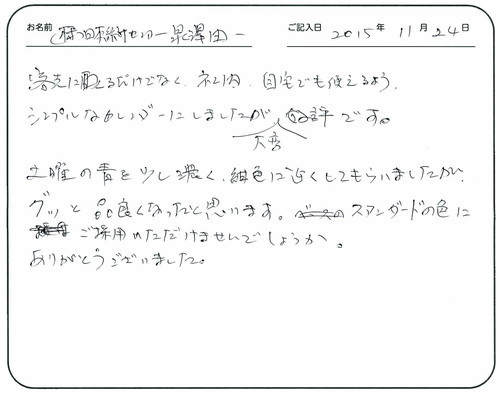 お名前 ご記入日 2015年 11月 24日
客先に配るだけでなく、社内、自宅でも使えるよう、
シンプルなカレンダーにしましたが、大変 好評です。
土曜の青を少し濃く、紺色に近くしてもらいましたが、
グッと品良くなったと思います。スタンダードの色に
ご採用いただけませんでしょうか。
ありがとうございました。